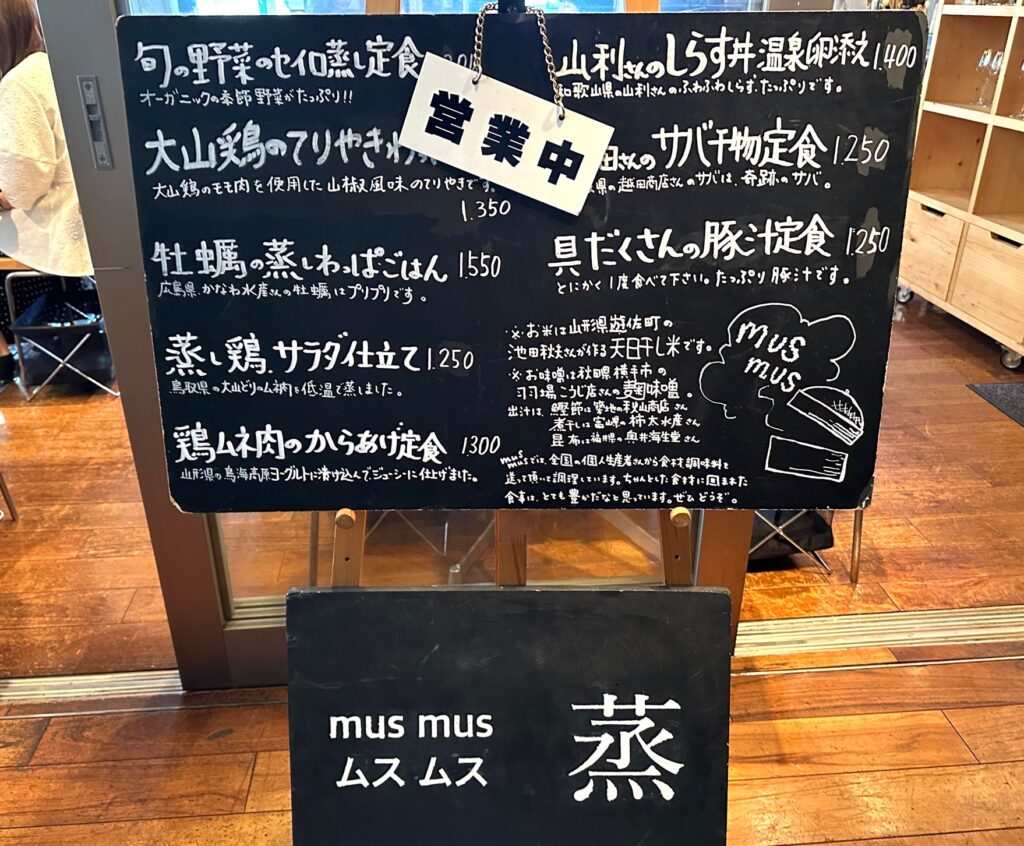 旬の野菜のセイロ蒸し定食
オーガニックの季節野菜がたっぷり!!
大山鶏のてりやきわ
大山鶏のモモ肉を使用した山椒風味のてりやきです。
1.350
牡蠣の蒸しわっぱごはん 1.550
広島県、かなわ水産さんの牡蠣はプリプリです。
蒸し鶏、サラダ仕立て 1.250
鳥取県の大山どりのムネ肉を低温で蒸しました。
鶏ムネ肉のからあげ定食 1300
山形県の鳥海高原ヨーグルトに漬け込んで、ジューシーに仕上げました。
営業中
山利さんのしらす丼 温泉卵添え 1.400
和歌山県の山利さんのふわふわしらす、たっぷりです。
田さんの サバ干物定食 1.250
県の越田商店さんのサバは、奇跡のサバ。
具だくさんの豚汁定食 1.250
とにかく1度食べて下さい。たっぷり豚汁です。
※お米は山形県遊佐町の
池田秋夫さんが作る天日干し米です。
※お味噌は秋田県横手市の
羽場こうじ店さんの麹味噌。
出汁は、鰹節は築地の秋山商店さん
煮干しは富山県の柿太水産さん
昆布は福井県の奥井海生堂さん
mus musでは、全国の個人生産者さんから食材、調味料を
送って頂いて調理しています。ちゃんとした食材に囲まれた
食事は、とても豊かだなと思っています。ぜひどうぞ。
mus
mus
mus mus
ムス ムス
蒸